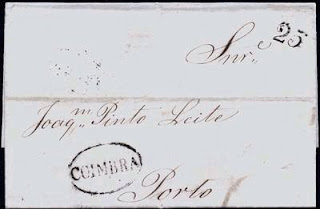 Snr. 25
Joaqm. Pinto Leite
COIMBRA
Porto